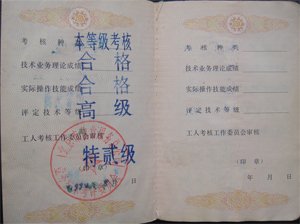 考核种类 本等级考核
技术业务理论成绩 合格
实际操作技能成绩 合格
评定技术等级 高级
工人考核工作委员会审核
特贰级
(印章)
年 月 日
考核种类
技术业务理论成绩
实际操作技能成绩
评定技术等级
工人考核工作委员会审核
(印章)
年 月 日